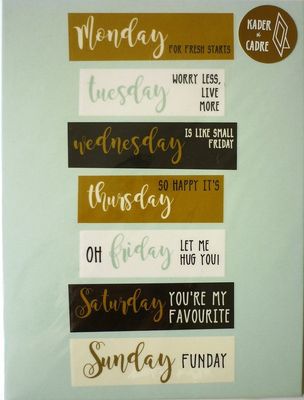 KADER
&
CADRE
Monday
FOR FRESH STARTS
tuesday
WORRY LESS,
LIVE
MORE
wednesday
IS LIKE SMALL
FRIDAY
SO HAPPY IT'S
thursday
OH friday LET ME
HUG YOU!
Saturday YOU'RE MY
FAVOURITE
Sunday FUNDAY